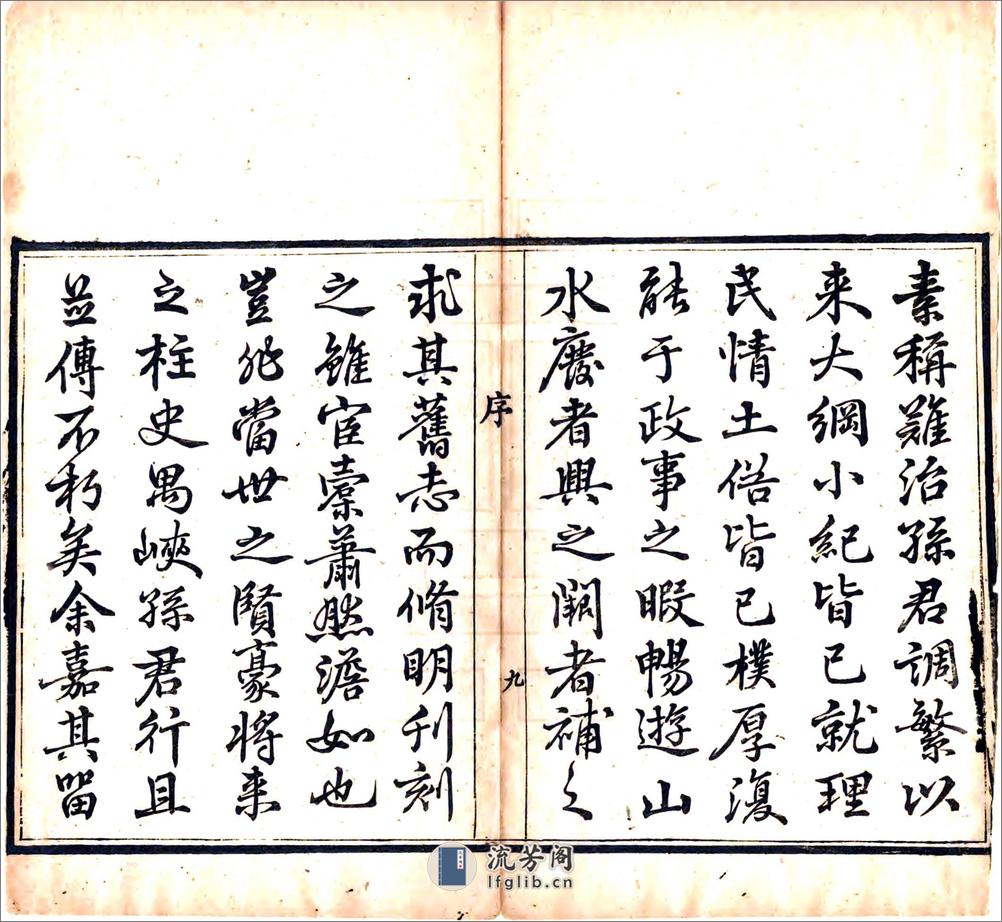 素稱難治孫君調繁以
来大綱小紀皆已就理
民情土俗皆已樸厚復
能于政事之暇暢遊山
水廢者興之闕者補之
序
九
求其舊志而脩明刋刻
之雖宦橐蕭然澹如也
豈非當世之賢豪将来
之柱史禺峽孫君行且
並傳不朽矣余嘉其留
流芳阁
lfglib.cn